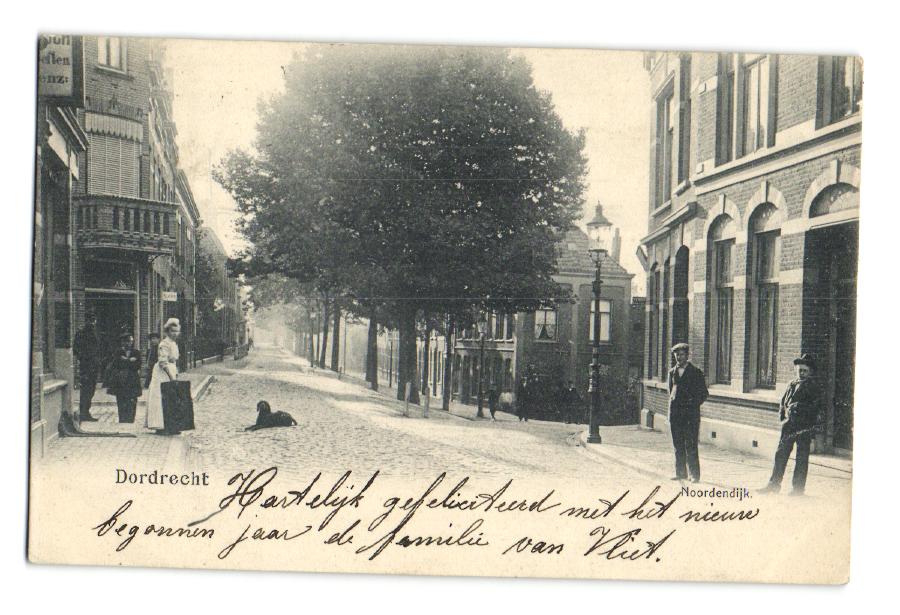 enz:
Dordrecht
Noordendijk.
Hartelijk gefeliciteerd met het nieuw
begonnen jaar de familie van Vliet.